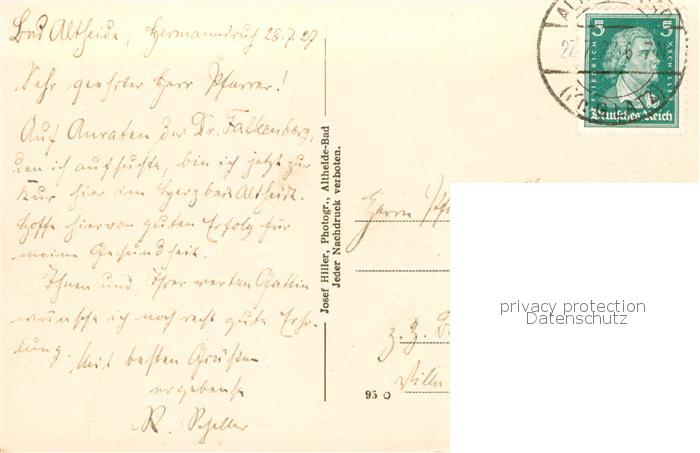 Bad Altheide, Hermannsruh 28.7.27
Sehr geehrter Herr Pfarrer!
Auf Anraten des Dr. Falkenberg,
den ich aufsuchte, bin ich jetzt zur
Kur hier im Herzbade Altheide.
Hoffe hiervon guten Erfolg für
meine Gesundheit.
Ihnen und Ihrer werten Gattin
wünsche ich noch recht gute Erho-
lung. Mit besten Grüßen
ergebenst
R. Scheller
Josef Hiller, Photogr., Altheide-Bad
Jeder Nachdruck verboten.
5 5
FRIEDRICH SCHILLER
Deutsches Reich
(KR. GLATZ)
Herrn
z. Z. 
Villa
95 O
privacy protection
Datenschutz